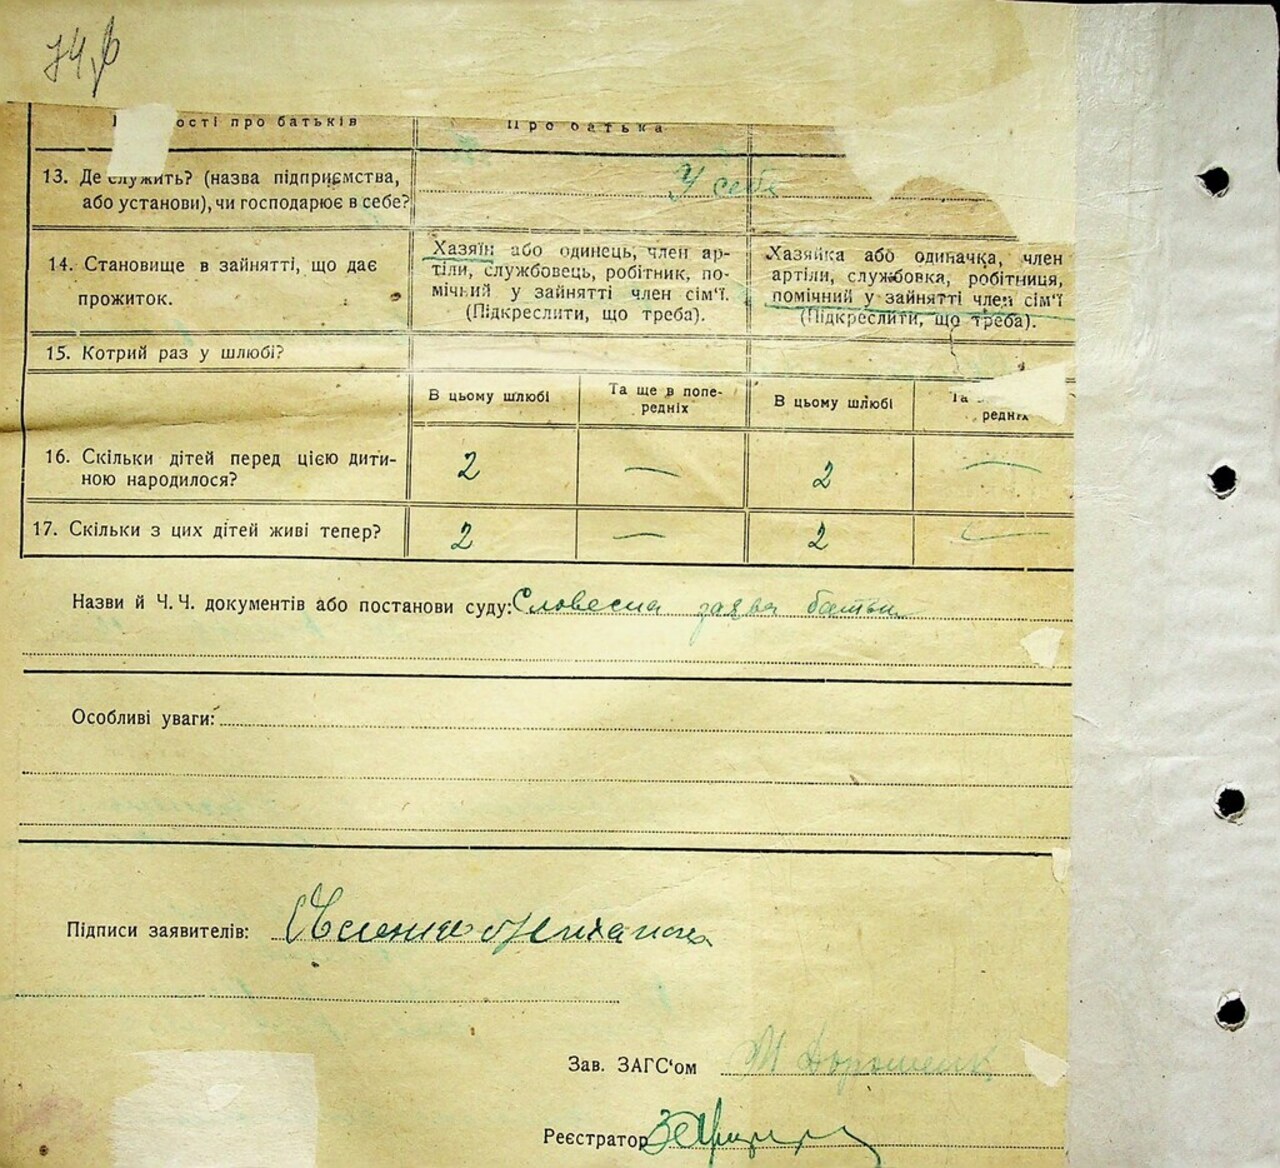 ості про батьків
Про батька
13. Де служить? (назва підприємства,
або установи), чи господарює в себе?
У себе
14. Становище в зайнятті, що дає
прожиток.
Хазяїн або одинець, член ар-
тіли, службовець, робітник, по-
мічний у зайнятті член сім'ї.
(Підкреслити, що треба).
Хазяйка або одиначка, член
артіли, службовка, робітниця,
помічний у зайнятті член сім'ї
(Підкреслити, що треба).
15. Котрий раз у шлюбі?
В цьому шлюбі
Та ще в попе-
редніх
В цьому шлюбі
Та
редніх
16. Скільки дітей перед цією дити-
ною народилося?
2 — 2 —
17. Скільки з цих дітей живі тепер?
2 — 2 —
Назви й Ч. Ч. документів або постанови суду: Словесна заява батьк
Особливі уваги:
Підписи заявителів:
Зав. ЗАГС'ом М Дорошенк
Реєстратор